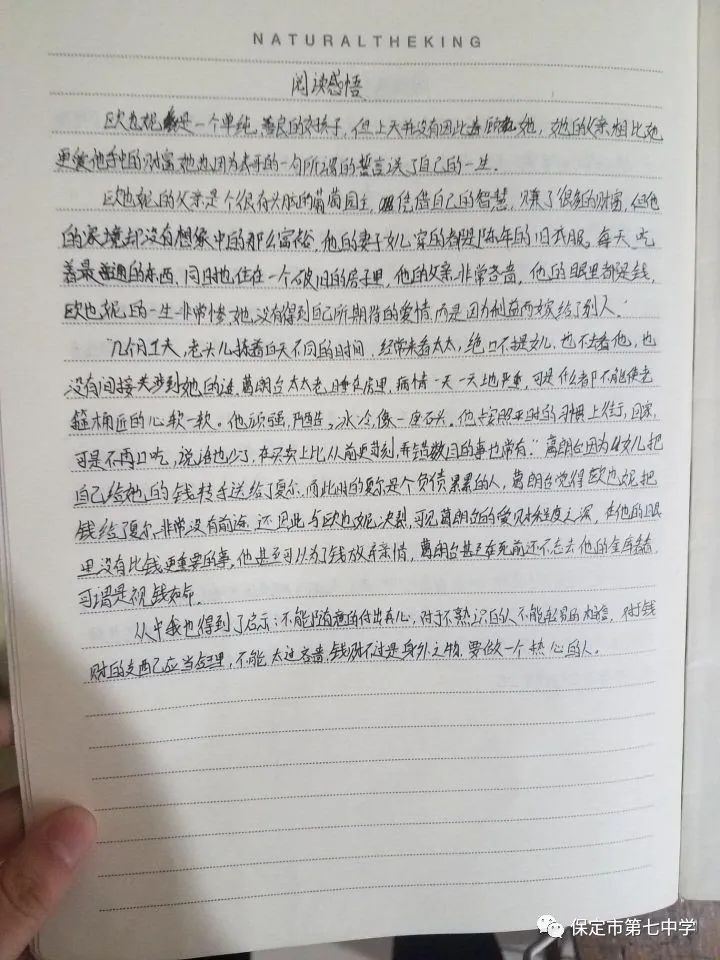 NATURALTHEKING
阅读感悟
欧也妮是一个单纯、善良的女孩子,但上天并没有因此眷顾她,她的父亲相比她
更爱他手中的财富,她也因为夫哥的一句所谓的誓言送了自己的一生。
欧也妮的父亲是个很有头脑的葡萄园主,凭借自己的智慧,赚了很多的财富,但他
的家境却没有想象中的那么富裕,他的妻子女儿穿的都是陈年的旧衣服,每天吃
着最普通的东西,同时也住在一个破旧的房子里,他的父亲非常吝啬,他的眼里都是钱,
欧也妮的一生非常惨,她没有得到自己所期待的爱情,而是因为利益而嫁给了别人。
“几个月工夫,老头儿拣着白天不同的时间,经常来看太太,绝口不提女儿,也不去看他,也
没有间接关涉到她的话,葛朗台太太老睡在房里,病情一天一天地严重,可是什么都不能使老
箍桶匠的心软一软。他顽强,严酷,冰冷,像一座石头,他按照平时的习惯上街,回家,
可是不再口吃,说话也少了,在买卖上比从前更苛刻,弄错数目的事也常有。”葛朗台因为女儿把
自己给她的钱转手送给了夏尔,而此时的夏尔是个负债累累的人,葛朗台觉得欧也妮把
钱给了夏尔,非常没有前途,还因此与欧也妮决裂,可见葛朗台的爱财程度之深,在他的眼
里没有比钱更重要的事,他甚至可以为了钱放弃亲情,葛朗台甚至在死前还不忘去他的金库看看,
可谓是视钱如命。
从中我也得到了启示:不能随意的付出真心,对于不熟识的人不能轻易的相信,对于钱
财的支配己应当合理,不能太过吝啬,钱财不过是身外之物,要做一个热心的人。
保定市第七中学